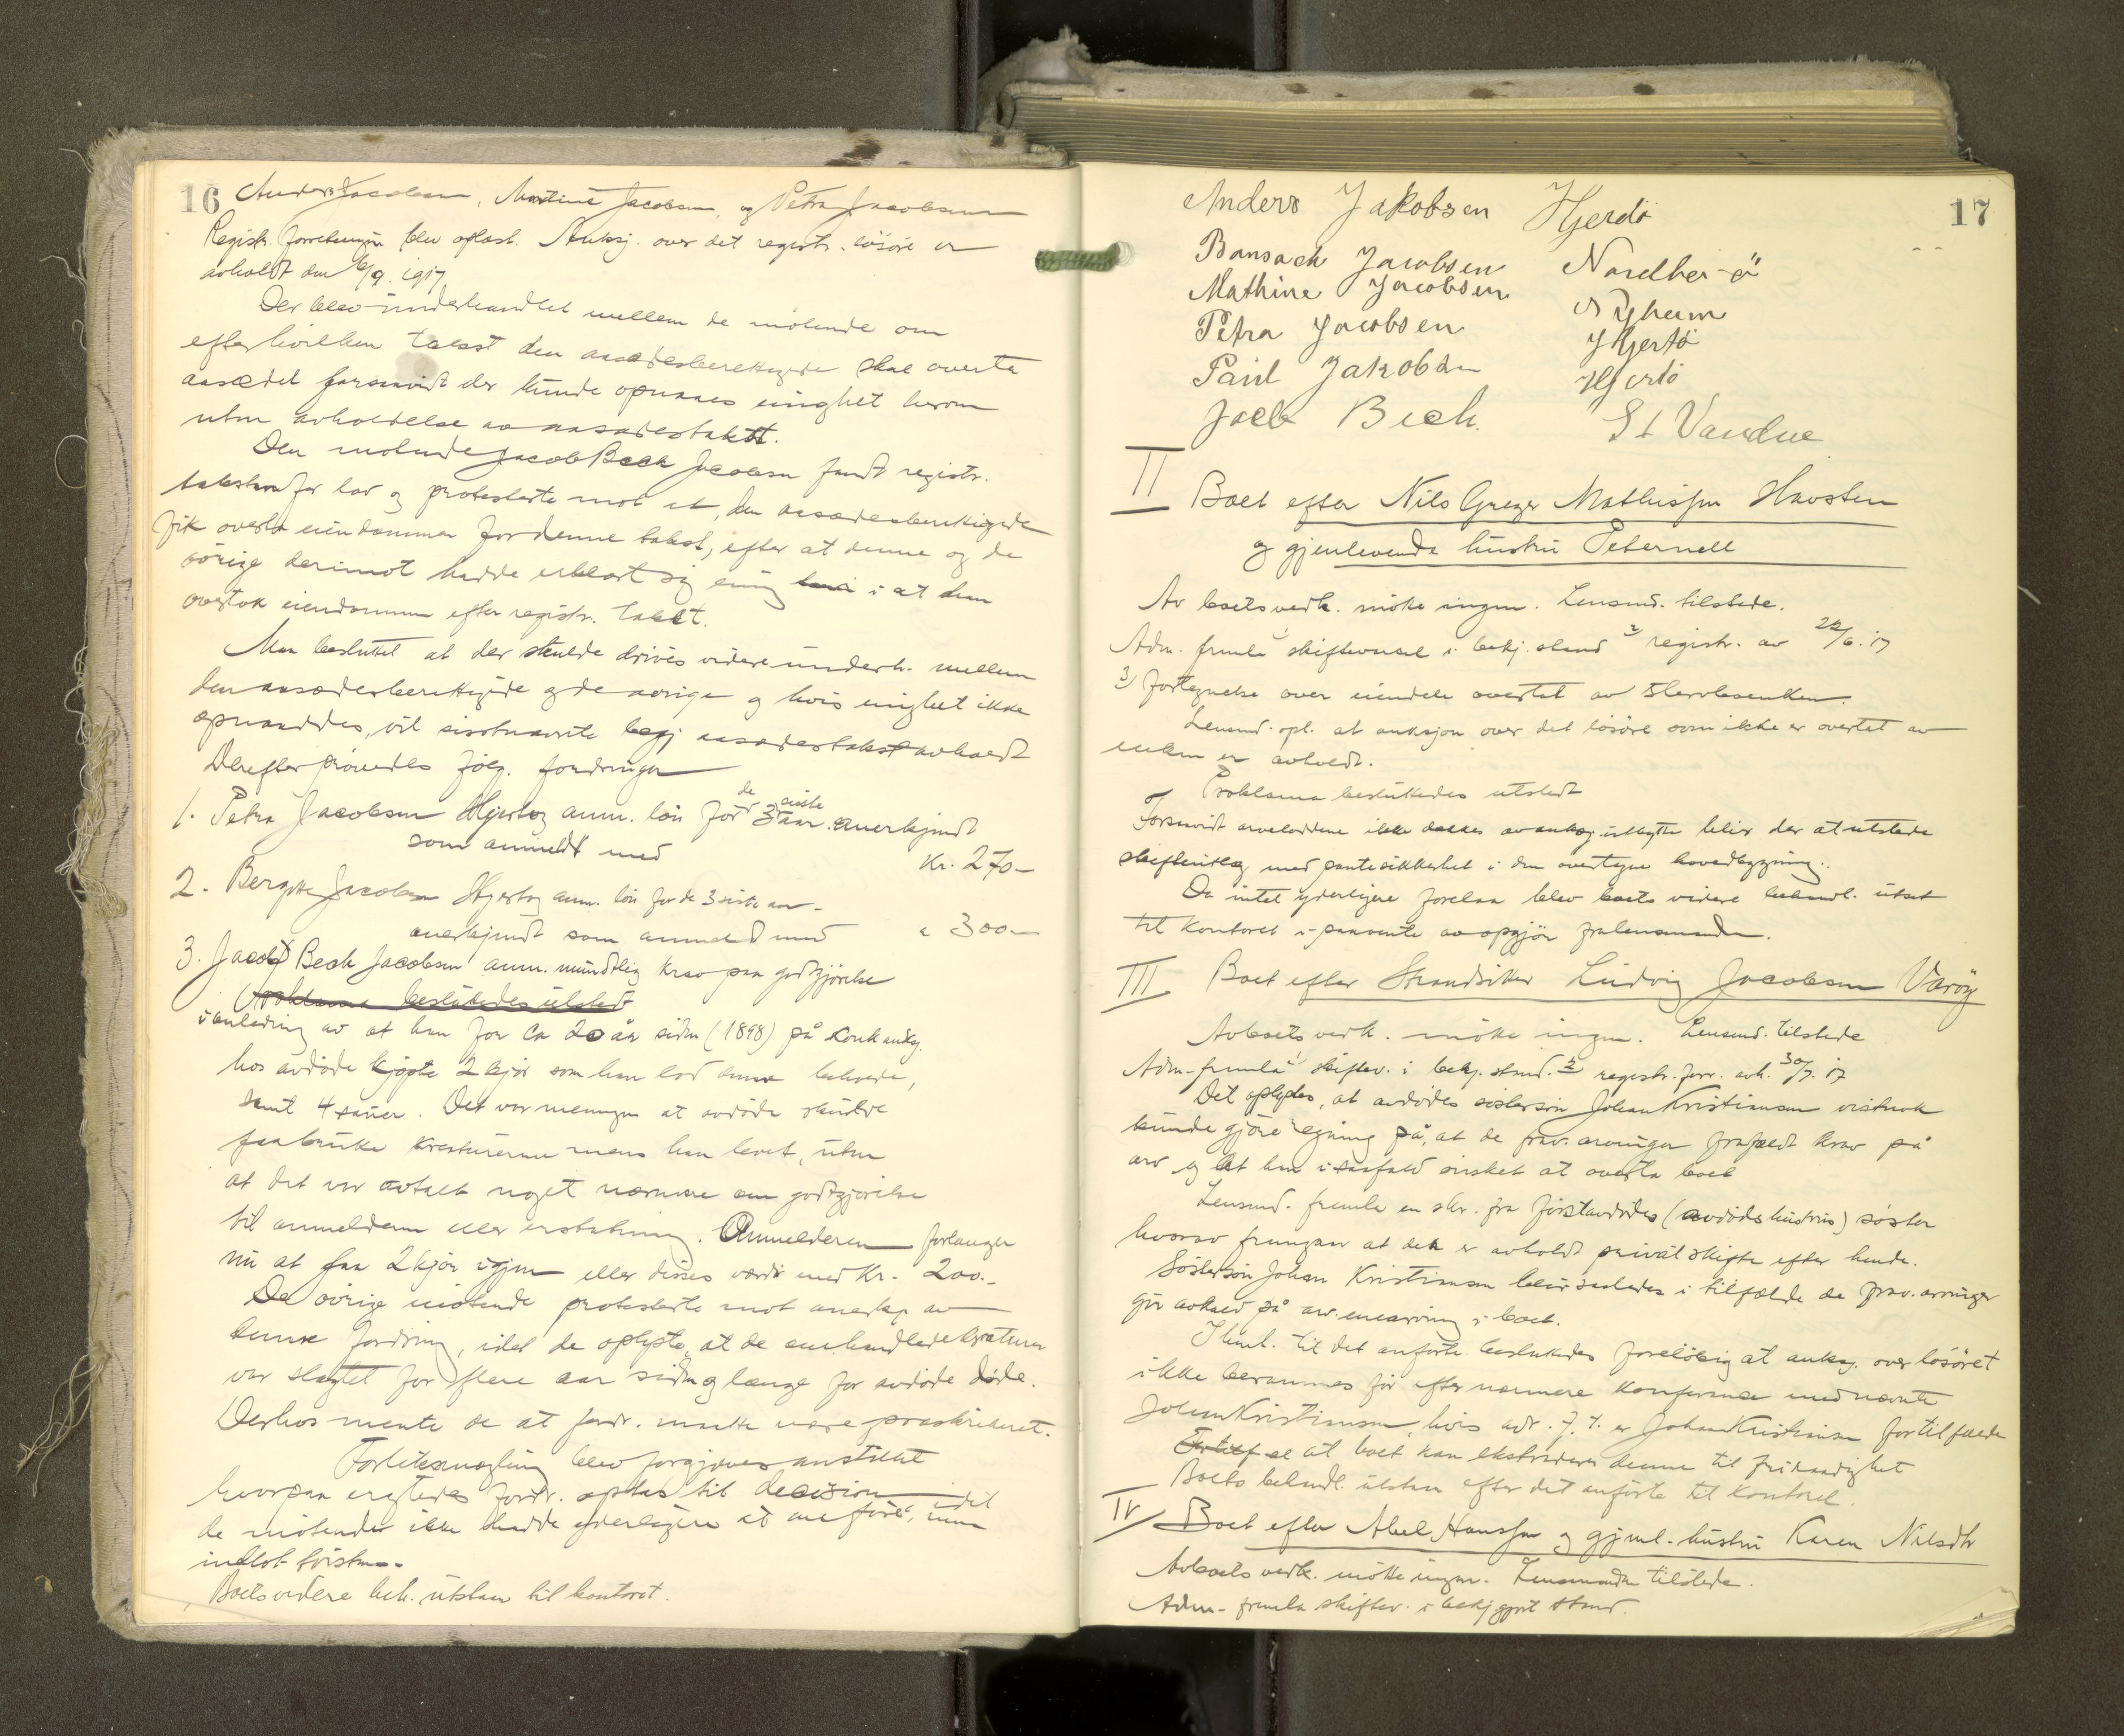 16
Anders Jacobsen, Martine Jacobsen, og Petra Jacobsen
Registr. forretningen blev oplæst. Auksj. over det registr. lösöre er
avholdt den 6/9. 1917
Der blev underhandlet mellem de mötende om
efter hvilken takst den aasædesberettigede skal overta
aasædet forsaavidt der kunde opnaaes enighet herom
uten avholdelse av aasædestakst.
Den mötende Jacob Bech Jacobsen fandt registr.
taksten for lav og protesterte mot at den aasædesberettigede
fik overta eiendommen for denne takst, efter at denne og de
övrige derimot hadde erklært sig enig i at han
overtok eiendommen efter registr. takst.
Man besluttet at der skulde drives videre underh. mellem
den aasædesberettigede og de övrige og hvis enighet ikke
opnaaddes, vil sistnævnte begj. aasædestakst avholdt
Derefter prövedes fölg. fordringer
1. Petra Jacobsen Hjertøy anm. lön for de siste 3 aar. anerkjendt
som anmeldt med Kr. 270-
2. Bergitte Jacobsen Hjertøy anm. lön for de 3 siste aar -
anerkjendt som anmeldt med " 300-
3. Jacob Bech Jacobsen anm. mündtlig krav paa godtgjörelse
Proklama beslutedes utstedt
i anledning av at han for ca 20 år siden (1898) på konk. auksj.
hos avdöde kjöpte 2 kjör som han lod denne beholde,
samt 4 sauer. Det var meningen at avdöde skulde
faa bruke kreaturerne mens han levet, uten
at det var avtalt noget nærmere om godtgjörelse
til anmelderen eller erstatning. Anmelderen forlanger
nu at faa 2 kjör igjen eller disses værdi med Kr. 200.-
De övrige mötende protesterte mot anerkj. av
denne fordring, idet de oplyste, at de omhandlede kreaturer
var slagtet for flere aar siden og længe for avdöde döde.
Derhos mente de at fordr. maatte være præskriberet.
Forliksmægling blev forgjæves anstillet
hvorpaa ... fordr. optas til decision idet
de mötende ikke hadde yderligere at anföre, men
indlot tvisten.-
Boets videre beh. utstaar til kontoret.
17
Anders Jakobsen Hjerdö
Bansach Jacobsen Nordher-ö
Mathine Jacobsen Nyheim
Petra Jacobsen Hjertö
Paul Jakobsen Hjertö
Jacb Bech. St Vandve
II Boet efter Nils Greger Mathissen Havsten
og gjenlevende hustru Peternell
Av boets vedk. mötte ingen. Lensmd. tilstede.
Adm. fremla 1 skiftevarsel i bekj. stand 2 registr. av 22/6. 17
3) Fortegnelse over eiendele overtat av Stervboenken.
Lensmd. opl. at auksjon over det lösöre som ikke er overtat av
enken er avholdt.
Proklama besluttedes utstedt
Forsaavidt arveloddene ikke dækkes av auksj. utbytte blir der at utstede
skifteutlæg med pantesikkerhet i den overtagne hovedbygning.
Da intet yderligere forelaa blev boets videre behandl. utsat
til kontoret i paavente av opgjör fra lensmanden.
III Boet efter Strandsitter Ludvig Jacobsen Varöy
Av boets vedk. mötte ingen. Lensmd. tilstede
Adm. fremla 1 skiftev. i bekj. stand. 2 registr. forr. avh. 30/7. 17
Det oplystes, at avdödes sösterson Johan Kristiansen vistnok
kunde gjöre regning på, at de frav. arvinger frafaldt krav på
arv og at han i saafald önsket at overta boet
Lensmd. fremla en skr. fra förstavdödes (avdödes hustrus) söster
hvorav fremgaar at det er avholdt privat skifte efter hende.
Söstersön Johan Kristiansen blir saaledes i tilfælde de frav. arvinger
gir avkald på arv enearving i boet.
I henh. til det anförte besluttedes forelöbig at auksj. over lösöret
ikke berammes för efter nærmere konferance med nævnte
Johan Kristiansen, hvis adr. f. t. er Johan Kristiansen for tilfælde
at boet kan ekstraderes denne til friraadighet
Boets behandl. utstaar efter det anförte til kontoret.
IV Boet efter Abel Hanssen og gjenl. hustru Karen Nilsdtr
Av boets vedk. mötte ingen. Lensmanden tilstede.
Adm. fremla skiftev. i bekjgjort stand.